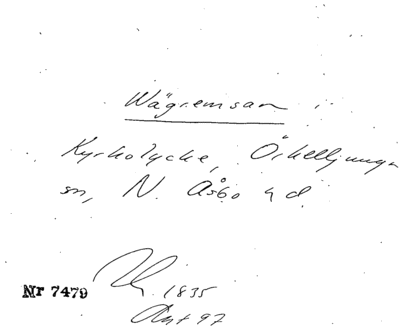 Wägremsan
Kyrkolycke, Örkelljunga
sn, N. Åsbo hd
1835
Nr 7479
Avst 97